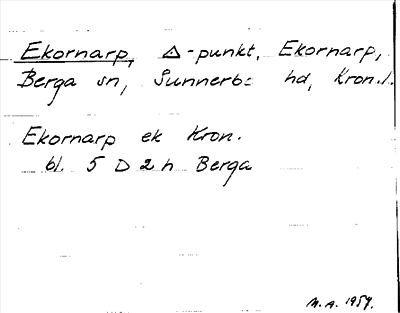 Ekornarp, △-punkt, Ekornarp,
Berga sn, Sunnerbo hd, Kron.l.
Ekornarp ek Kron.
bl. 5 D 2 h Berga
M.A. 1959.